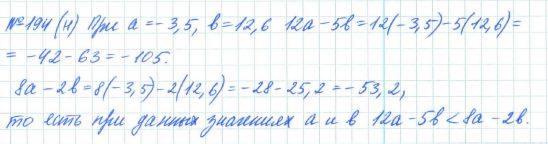 №194(н) При a = -3,5, в = 12,6 12a - 5в = 12(-3,5) - 5(12,6) =
= -42 - 63 = -105.
8a - 2в = 8(-3,5) - 2(12,6) = -28 - 25,2 = -53,2,
то есть при данных значениях a и в 12a - 5в < 8a - 2в.